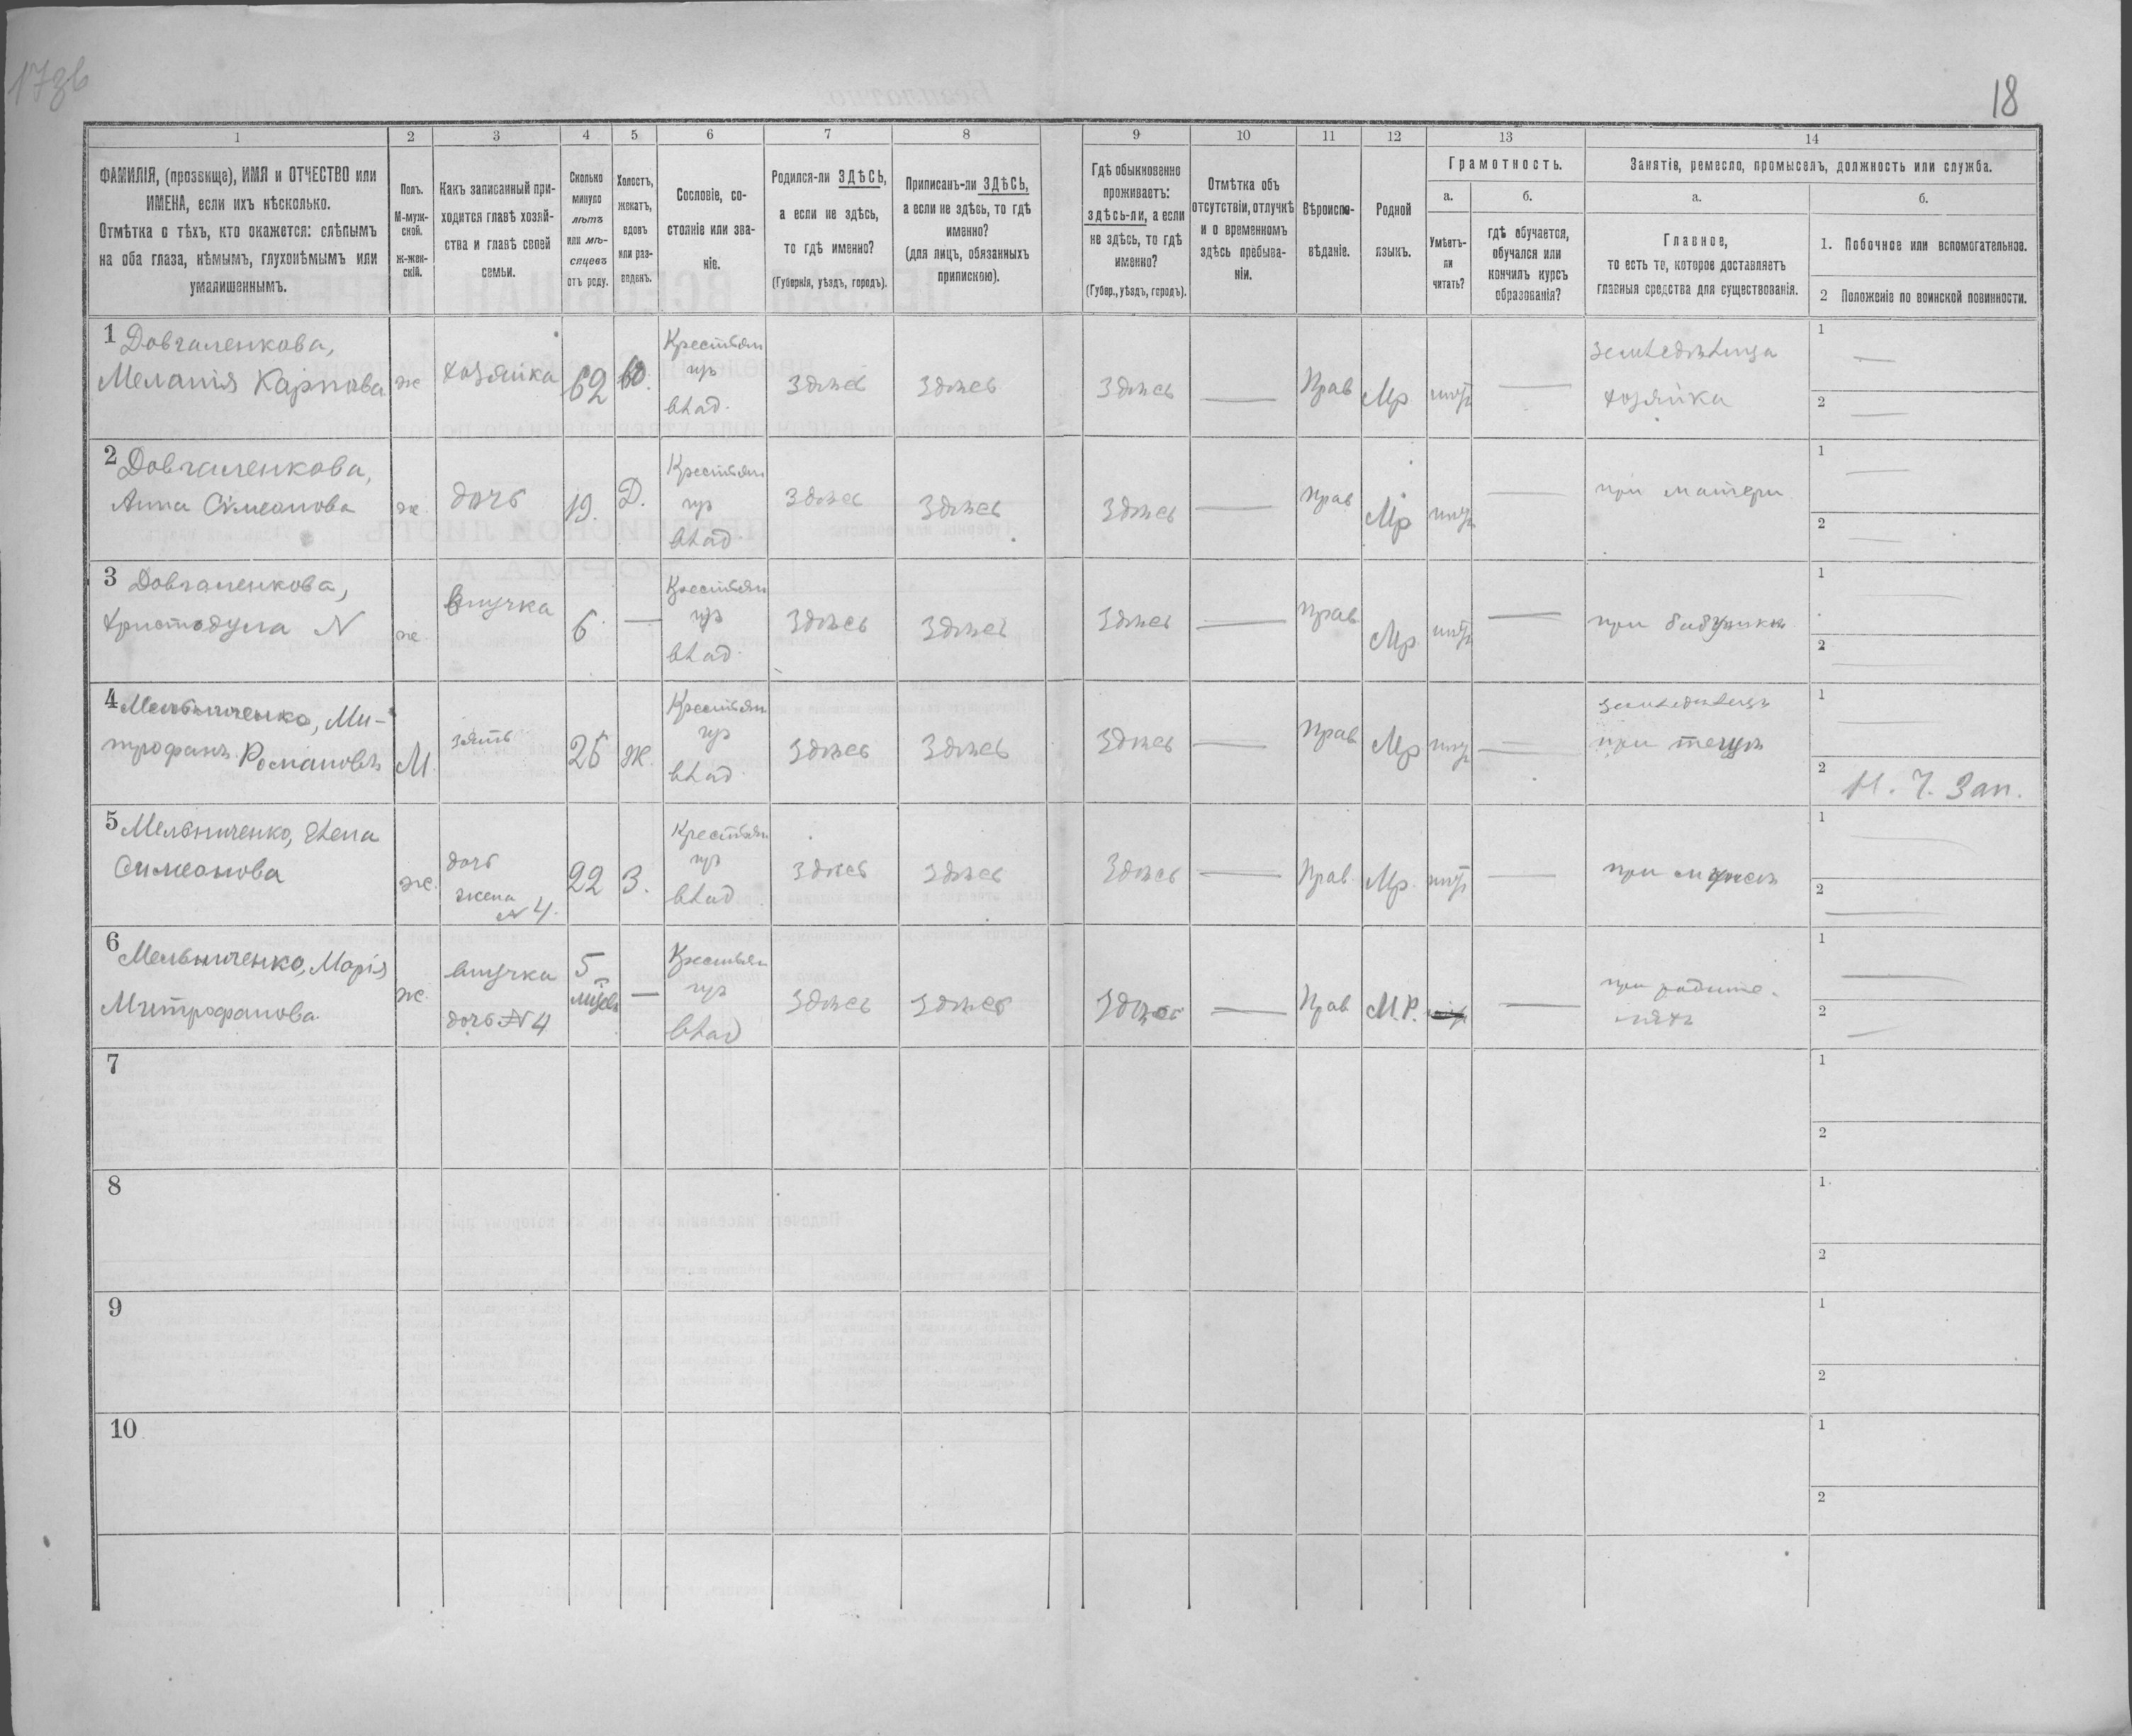 17 зв
18
1
2
3
4
5
6
7
8
9
10
11
12
13
14
ФАМИЛІЯ, (прозвище), ИМЯ и ОТЧЕСТВО или
ИМЕНА, если ихъ нѣсколько.
Отмѣтка о тѣхъ, кто окажется: слѣпымъ
на оба глаза, нѣмымъ, глухонѣмымъ или
умалишеннымъ.
Полъ.
М-муж-
ской.
Ж-жен-
скій.
Какъ записанный при-
ходится главѣ хозяй-
ства и главѣ своей
семьи.
Сколько
минуло
лѣтъ
или мѣ-
сяцевъ
отъ роду.
Холостъ,
женатъ,
вдовъ
или раз-
веденъ.
Сословіе, со-
стояніе или зва-
ніе.
Родился-ли ЗДѢСЬ,
а если не здѣсь,
то гдѣ именно?
(Губернія, уѣздъ, городъ).
Приписанъ-ли ЗДѢСЬ,
а если не здѣсь, то гдѣ
именно?
(для лицъ, обязанныхъ
припискою).
Гдѣ обыкновенно
проживаетъ:
здѣсь-ли, а если
не здѣсь, то гдѣ
именно?
(Губер., уѣздъ, городъ).
Отмѣтка объ
отсутствіи, отлучкѣ
и о временномъ
здѣсь пребыва-
ніи.
Вѣроиспо-
вѣданіе.
Родной
языкъ.
Грамотность.
а.
Умѣетъ-
ли
читать?
б.
гдѣ обучается,
обучался или
кончилъ курсъ
образованія?
Занятія, ремесло, промыселъ, должность или служба.
а.
Главное,
то есть то, которое доставляетъ
главныя средства для существованія.
б.
1. Побочное или вспомогательное.
2 Положеніе по воинской повинности.
1 Довгаленкова,
Меланія Карпова
ж
хозяйка
62
Крестьян
изъ
влад.
здѣсь
здѣсь
здѣсь
—
Прав
Мр
—
земледѣлица
хозяйка
1 —
2 —
2 Довгаленкова,
Анна Симеонова
ж.
дочь
19.
Д.
Крестьян
изъ
влад.
здѣсь
здѣсь
здѣсь
—
Прав
Мр
—
при матери
1 —
2 —
3 Довгаленкова,
Христодула N
ж.
внучка
6.
—
Крестьян
изъ
влад.
здѣсь
здѣсь
здѣсь
—
Прав
Мр
—
при бабушкѣ
1 —
2 —
4 Мельниченко, Ми-
трофанъ Романовъ
М.
зять
Ж.
Крестьян
изъ
влад.
здѣсь
здѣсь
здѣсь
—
Прав
Мр
—
земледѣлецъ
при тещѣ
1 —
2 Зап.
5 Мельниченко, Елена
Симеонова
ж.
дочь
жена
N 4.
22
З.
Крестьян
изъ
влад
здѣсь
здѣсь
здѣсь
—
Прав.
Мр.
—
при мужѣ
1 —
2 —
6 Мельниченко, Марія
Митрофанова.
ж.
внучка
дочь N 4
5
—
Крестьян
изъ
влад
здѣсь
здѣсь
здѣсь
—
Прав
М.Р.
—
при родите-
ляхъ
1 —
2 —
7
1
2
8
1
2
9
1
2
10
1
2